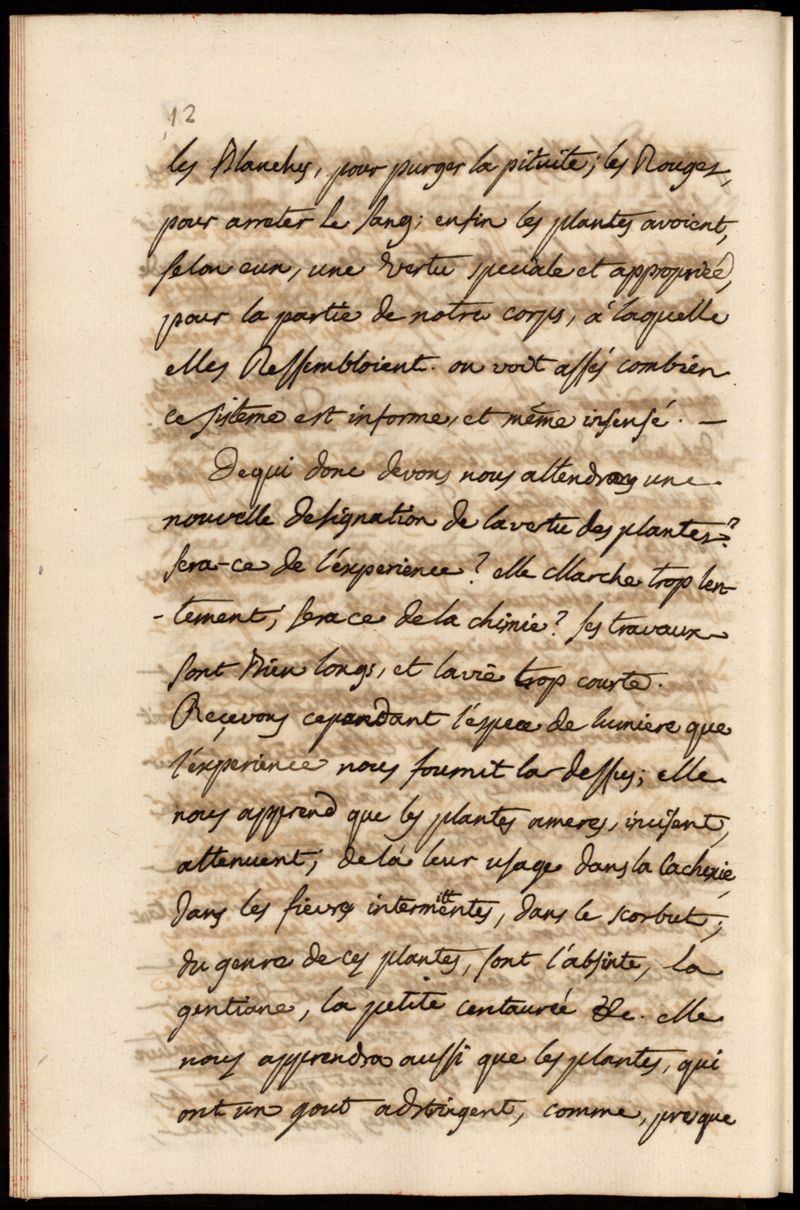 12
les Blanches, pour purger la pituite; les Rouges,
pour arreter le sang; enfin les plantes avoient,
selon eux, une vertu speciale et appopriée,
pour la partie de notre corps, a laquelle
elles Ressembloient. on voit assés combien
ce sistême est informe, et même insensé. —
De qui donc devons nous attendre une
nouvelle designation de la vertu des plantes?
sera-ce de l'éxperience? elle Marche trop len-
-tement; sera ce de la chimie? ses travaux
sont Bien longs, et la vie trop courte.
Reçevons cependant l'éspece de lumiere que
l'éxperience nous fournit la dessus; elle
nous apprend que les plantes ameres, incisent,
attenuent; de là leur usage dans la Cachexie,
dans les fievres intermittentes, dans le scorbut;
du genre de ces plantes, sont l'absinte, la
gentiane, la petite centaurée &c. elle
nous apprendra aussi que les plantes, qui
ont un gout adstringent, comme, presque